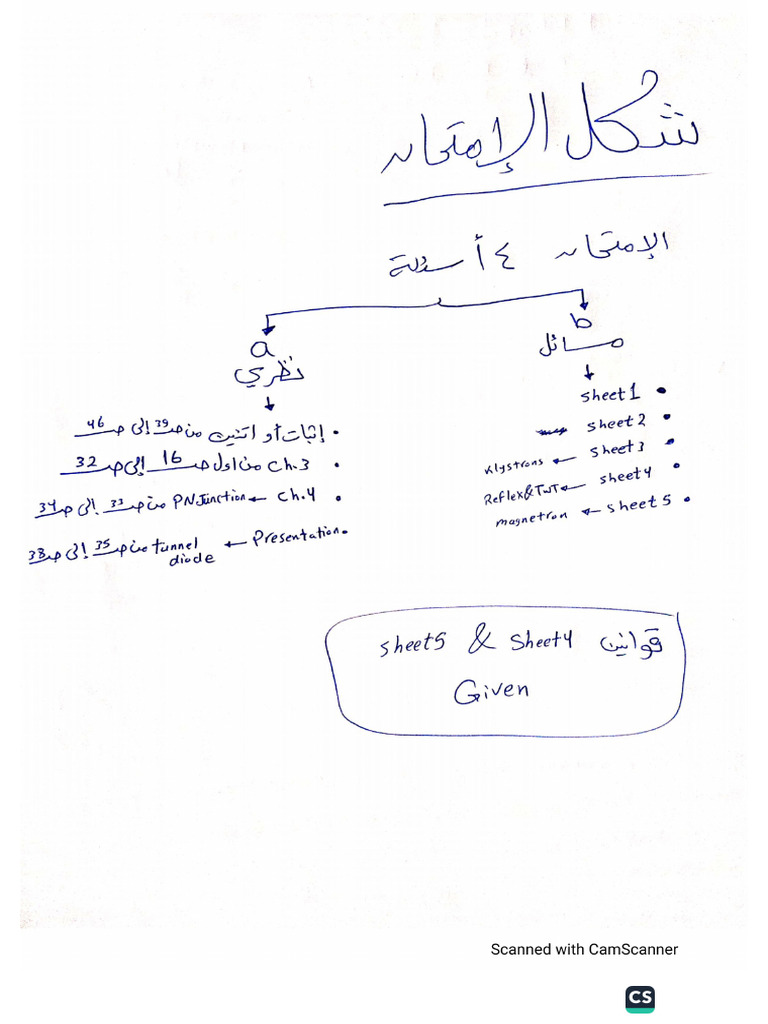 شكل الإمتحان
الإمتحان ٤ أسئلة
b
مسائل
sheet 1
sheet 2
sheet 3 ← Klystrons
sheet 4 ← Reflex & TWT
sheet 5 ← magnetron
a
نظري
• إثبات أو اتنين من صـ 39 إلى صـ 46
• ch.3 من اول صـ 16 إلى صـ 32
• ch.4 ← PN Junction من صـ 33 إلى صـ 34
• Presentation ← tunnel diode من صـ 35 إلى صـ 38
قوانين sheet 4 & sheet 5
Given
Scanned with CamScanner
CS